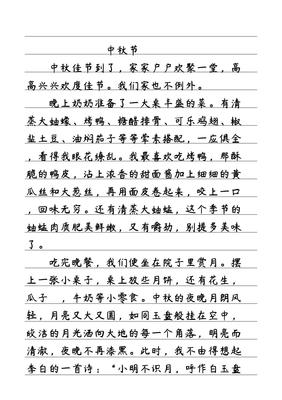 中秋节
中秋佳节到了，家家户户欢聚一堂，高
高兴兴欢度佳节。我们家也不例外。
晚上奶奶准备了一大桌丰盛的菜。有清
蒸大蛐蟓、烤鸭、糖醋排骨、可乐鸡翅、椒
盐土豆、油焖茄子等等荤素搭配，一应俱全
，看得我眼花缭乱。我最喜欢吃烤鸭，那酥
脆的鸭皮，沾上浓香的甜面酱加上细细的黄
瓜丝和大葱丝，再用面皮卷起来，咬上一口
，回味无穷。还有清蒸大蛐蜢，这个季节的
蛐蜢肉质肥美鲜嫩，又有嚼劲，别提多美味
了。
吃完晚餐，我们便坐在院子里赏月。摆
上一张小桌子，桌上放些月饼，还有花生，
瓜子 ，牛奶等小零食。中秋的夜晚月朗风
轻，月亮又大又圆，如同玉盘般挂在空中，
皎洁的月光洒向大地的每一个角落，明亮而
清澈，夜晚不再漆黑。此时，我不由得想起
李白的一首诗：“小明不识月，呼作白玉盘